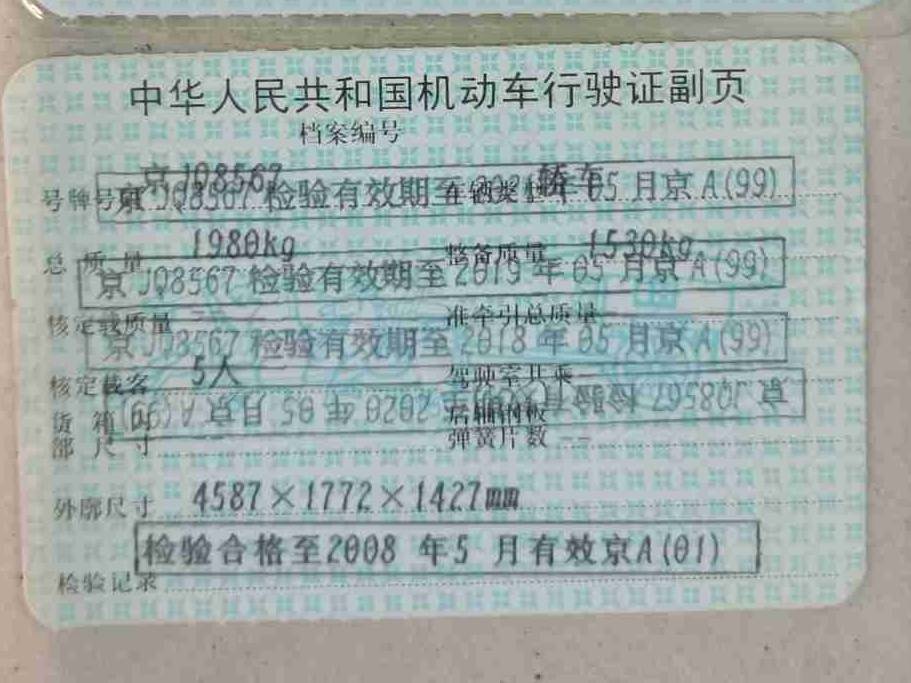 中华人民共和国机动车行驶证副页
档案编号
号牌号 京JQ8567 轿车
京JQ8567 检验有效期至 年05月京A(99)
总质量 1980kg 整备质量 1530kg
京JQ8567 检验有效期至2019年05月京A(99)
核定载质量 准牵引总质量
京JQ8567 检验有效期至2018年05月京A(99)
核定载客 5人 驾驶室共乘
京JQ8567 检验有效期至2020年05月京A(99)
货箱 后轴钢板
部尺寸 弹簧片数 --
外廓尺寸 4587×1772×1427mm
检验合格至2008年5月有效京A(01)
检验记录